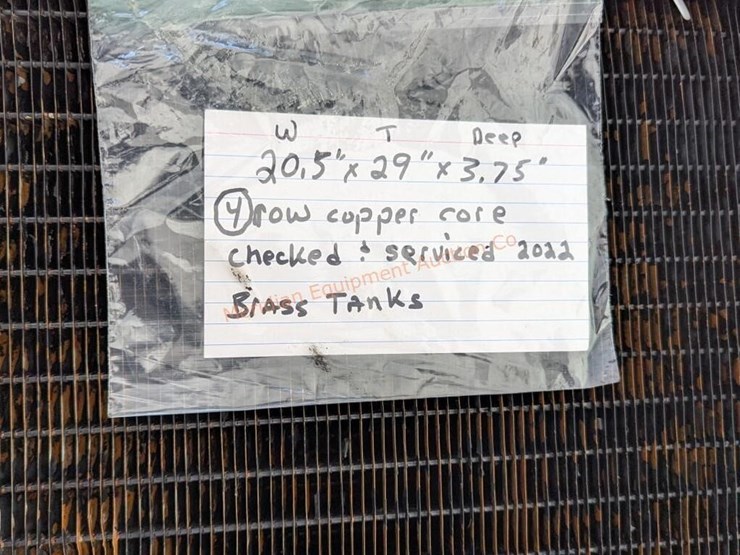 W T Deep
20.5" x 29" x 3.75"
4 row copper core
checked & serviced 2022
Brass Tanks
Meridian Equipment Auction Co.